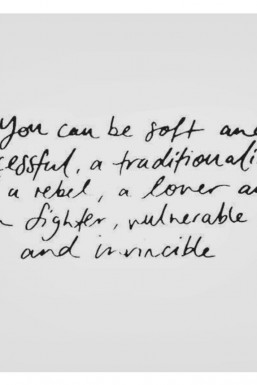 You can be soft and
cessful, a traditionali
a rebel, a lover a
fighter, vulnerable
and invincible